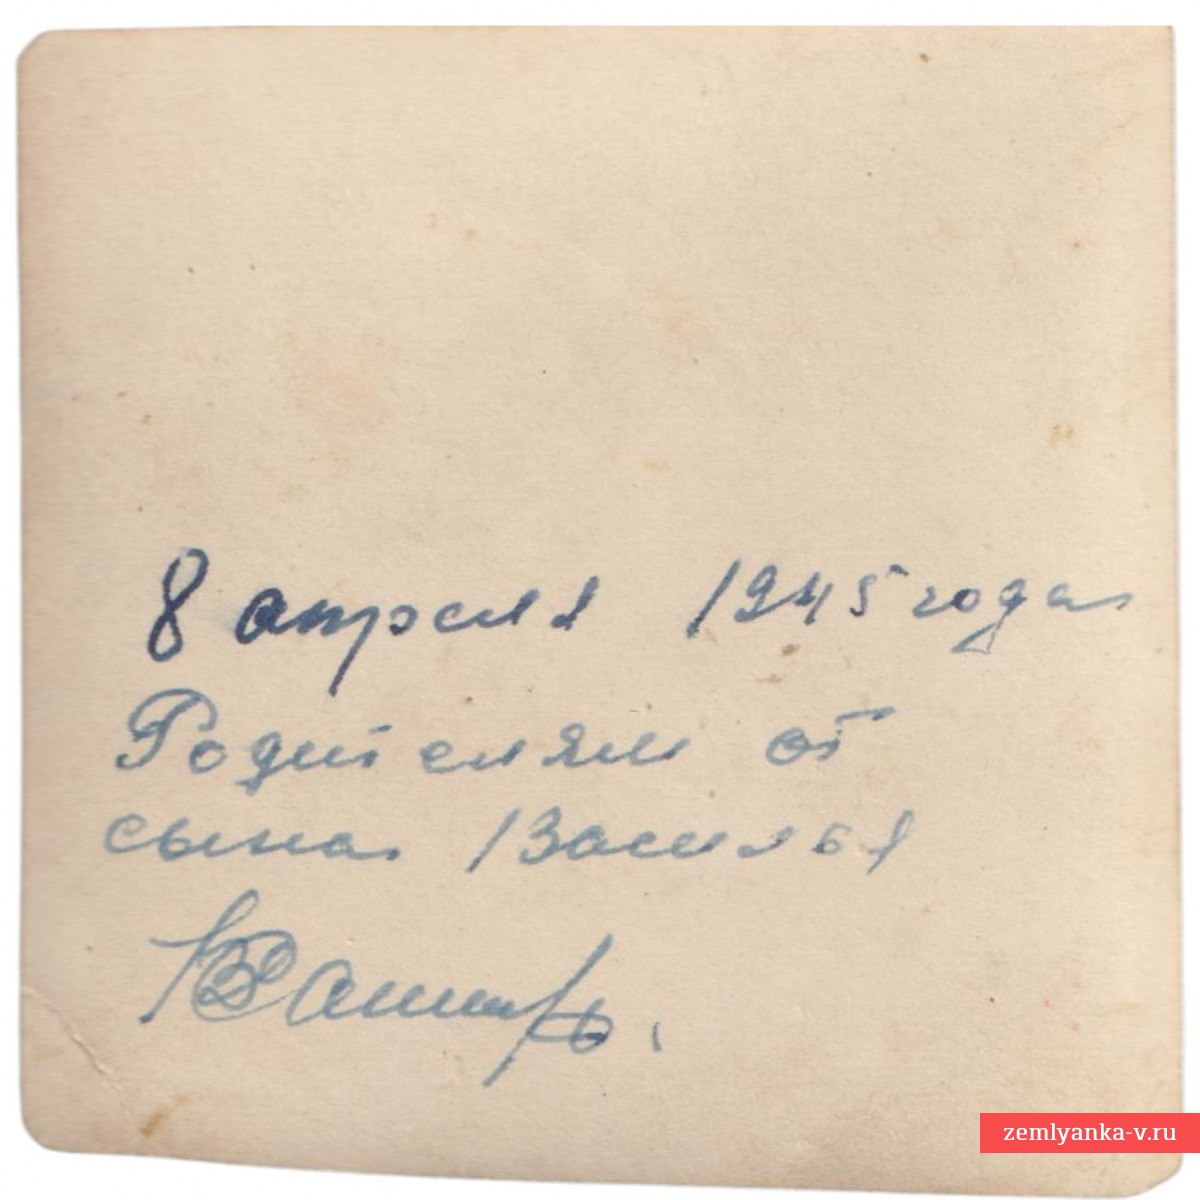 8 апреля 1945 года
Родителям от
сына Василья
zemlyanka-v.ru